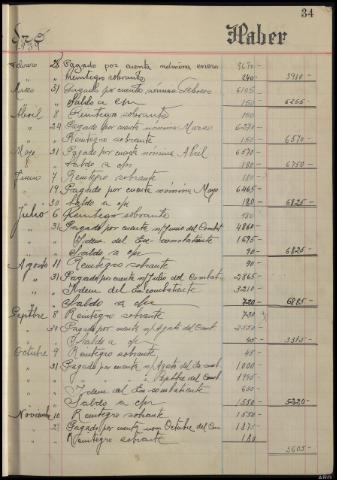 34
Haber
1939
Febrero 28 Pagado por cuenta nómina enero 3670 -
" " Reintegro sobrante 240 3910 -
Marzo 31 Pagado por cuenta nómina Febrero 6105
" " Saldo a c/n 150 6255 -
Abril 8 Reintegro sobrante 150
" 24 Pagado por cuente nómina Marzo 6270
" " Reintegro sobrante 150 6570 -
Mayo 31 Pagado por cuente nómina Abril 6570
" " Saldo a c/n 180 6750 -
Junio 7 Reintegro sobrante 180
" 19 Pagado por cuente nómina Mayo 6465
" 30 Saldo a c/n 180 6825 -
Julio 6 Reintegro sobrante 180
" 31 Pagado por cuente n/Junio del Combat 4860
" " Idem. del Ex-combatiente 1695
" " Saldo a c/n 90 6825 -
Agosto 11 Reintegro sobrante 90 -
" 31 Pagado por cuente n/Julio del Combat. 2865
" " Idem del Ex-combatiente 3210
" " Saldo a c/n 720 6885 -
Sepbre 8 Reintegro sobrante 720
" 30 Pagado por cuente n/Agosto del Comt 2550
" " Saldo a c/n 45 - 3315 -
Octubre 9 Reintegro sobrante 45 -
" 31 Pagado por cuente n/Agosto del Ex-comb 1000
" " " " " Sepbre del Comb 1995
" " Idem del Ex-combatiente 630
" " Saldo a c/n 1550 5220 -
Noviembre 10 Reintegro sobrante 1550
" 21 Pagado por cuente nom Octubre del Com 1875
" " Reintegro sobrante 180
3605 -